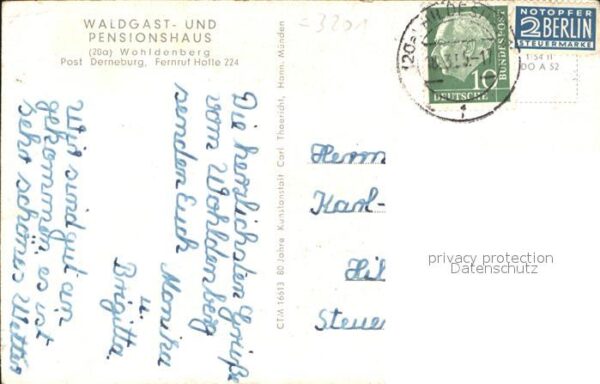 WALDGAST- UND
PENSIONSHAUS
(20a) Wohldenberg
Post Derneburg, Fernruf Holle 224
= 3201
Die herzlichsten Grüße
vom Wohldenberg
senden Euch Monika
u.
Brigitta.
Wir sind gut an
gekommen, es ist
sehr schönes Wetter
CTIA 16613 80 Jahre Kunstanstalt Carl Thoericht, Hann. Münden
(20a) HILDESH
10
DEUTSCHE
BUNDESPOST
NOTOPFER
2 BERLIN
STEUERMARKE
1154 11
DO A 52
Herrn
Karl-
Hil
Steue
privacy protection
Datenschutz